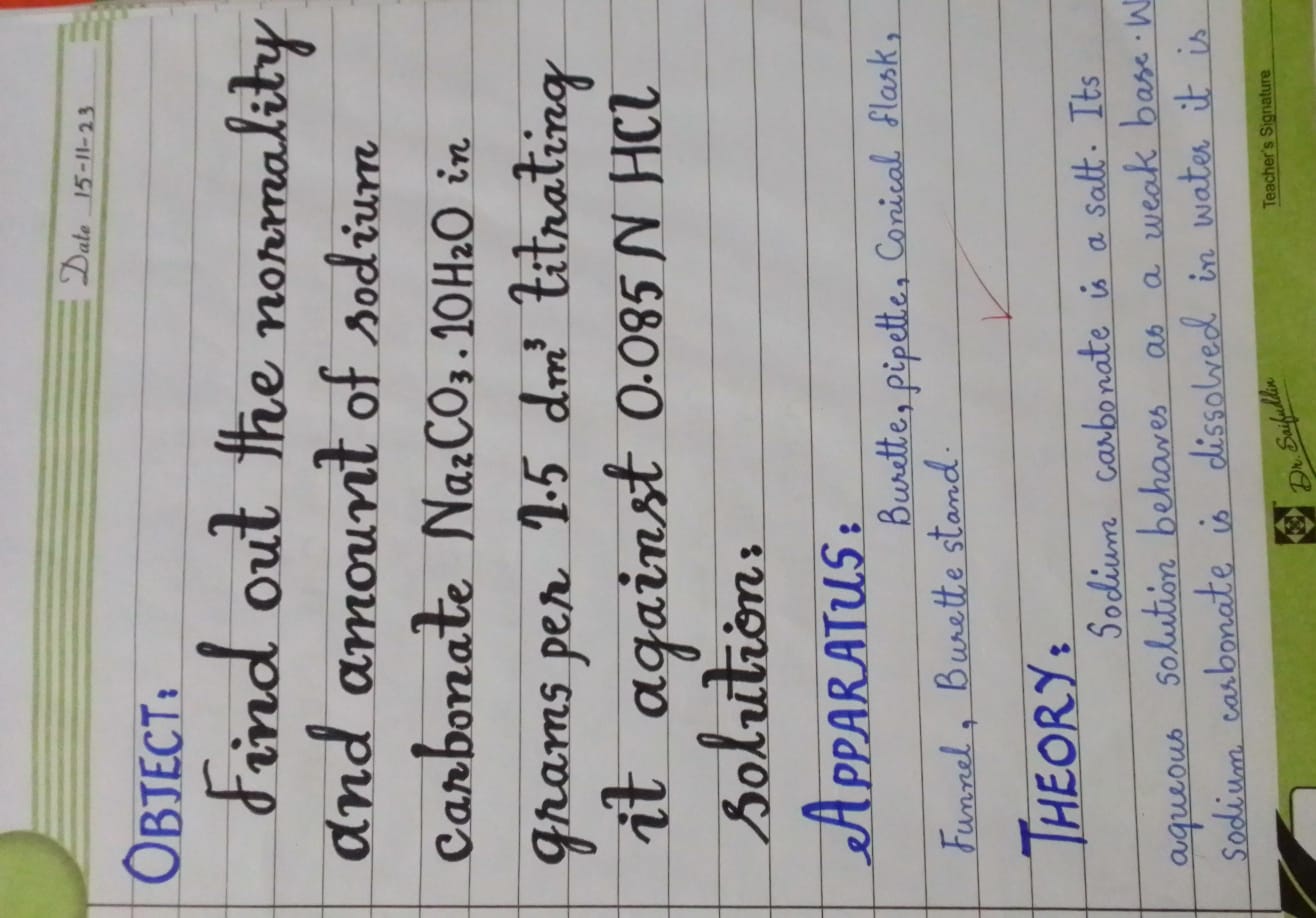 Date 15-11-23
OBJECT:
Find out the normality
and amount of sodium
carbonate Na₂CO₃.10H₂O in
grams per 1.5 dm³ titrating
it against 0.085 N HCl
solution:
APPARATUS:
Burette, pipette, Conical flask,
Funnel, Burette stand.
THEORY:
Sodium carbonate is a salt. Its
aqueous solution behaves as a weak base. W
sodium carbonate is dissolved in water it is
Teacher's Signature
Dr. Saifuddin